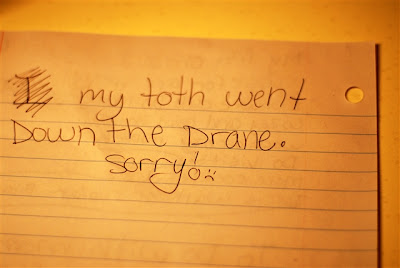 my toth went
Down the Drane.
sorry! :(